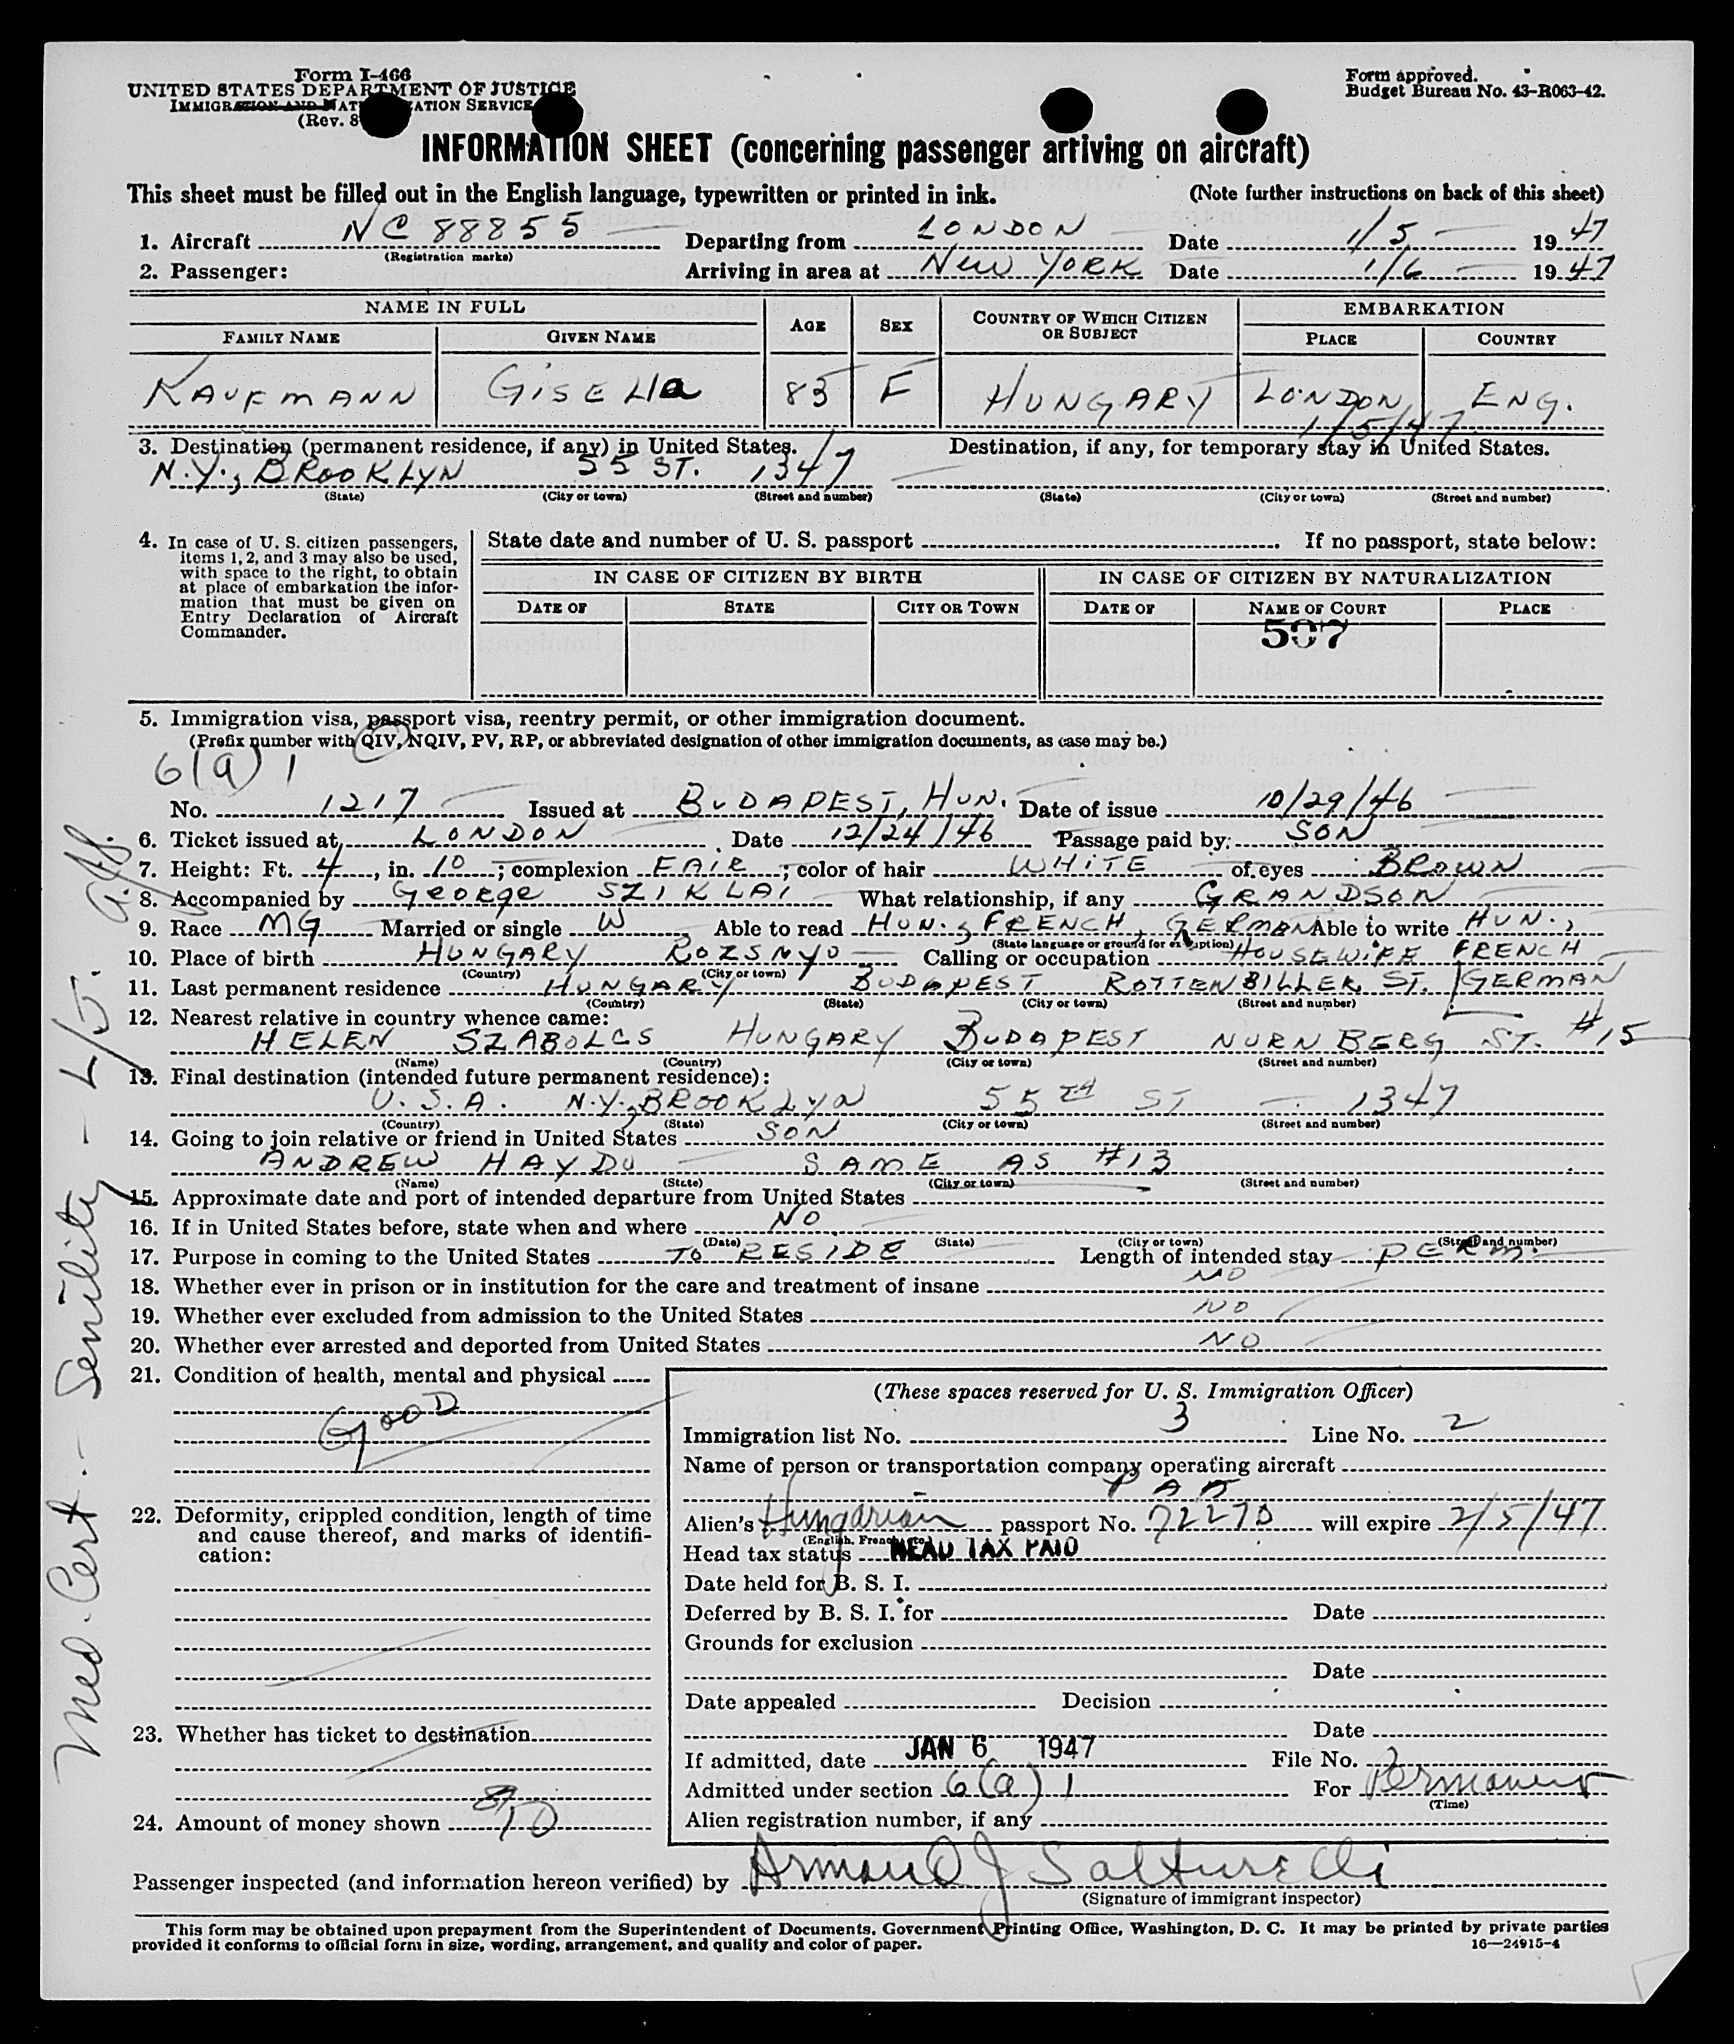 Form I-466
UNITED STATES DEPARTMENT OF JUSTICE
IMMIGRATION AND NATURALIZATION SERVICE
(Rev. 8
Form approved.
Budget Bureau No. 43-R063-42.
INFORMATION SHEET (concerning passenger arriving on aircraft)
This sheet must be filled out in the English language, typewritten or printed in ink. (Note further instructions on back of this sheet)
1. Aircraft NC 88855 Departing from LONDON Date 1/5 1947
(Registration marks)
2. Passenger: Arriving in area at NEW YORK Date 1/6 1947
NAME IN FULL AGE SEX COUNTRY OF WHICH CITIZEN OR SUBJECT EMBARKATION
FAMILY NAME GIVEN NAME PLACE COUNTRY
KAUFMANN GISELLa 83 F HUNGARY LONDON ENG.
1/5/47
3. Destination (permanent residence, if any) in United States. Destination, if any, for temporary stay in United States.
N.Y., BROOKLYN 55 ST. 1347
(State) (City or town) (Street and number) (State) (City or town) (Street and number)
4. In case of U. S. citizen passengers, items 1, 2, and 3 may also be used, with space to the right, to obtain at place of embarkation the information that must be given on Entry Declaration of Aircraft Commander.
State date and number of U. S. passport If no passport, state below:
IN CASE OF CITIZEN BY BIRTH IN CASE OF CITIZEN BY NATURALIZATION
DATE OF STATE CITY OR TOWN DATE OF NAME OF COURT PLACE
507
5. Immigration visa, passport visa, reentry permit, or other immigration document.
(Prefix number with QIV, NQIV, PV, RP, or abbreviated designation of other immigration documents, as case may be.)
6(a) 1
No. 1217 Issued at BUDAPEST, HUN. Date of issue 10/29/46
6. Ticket issued at LONDON Date 12/24/46 Passage paid by: SON
7. Height: Ft. 4, in. 10; complexion FAIR; color of hair WHITE of eyes BROWN
8. Accompanied by George SZIKLAI What relationship, if any GRANDSON
9. Race MG Married or single W Able to read HUN., FRENCH, GERMAN Able to write HUN.,
(State language or ground for exemption)
10. Place of birth HUNGARY ROZSNYO Calling or occupation HOUSEWIFE FRENCH
(Country) (City or town)
11. Last permanent residence HUNGARY BUDAPEST ROTTENBILLER ST. GERMAN
(Country) (State) (City or town) (Street and number)
12. Nearest relative in country whence came:
HELEN SZABOLCS HUNGARY BUDAPEST NURNBERG ST. #15
(Name) (Country) (City or town) (Street and number)
13. Final destination (intended future permanent residence):
U.S.A. N.Y., BROOKLYN 55TH ST 1347
(Country) (State) (City or town) (Street and number)
14. Going to join relative or friend in United States SON
ANDREW HAYDU SAME AS #13
(Name) (State) (City or town) (Street and number)
15. Approximate date and port of intended departure from United States
16. If in United States before, state when and where NO
(Date) (State) (City or town) (Street and number)
17. Purpose in coming to the United States TO RESIDE Length of intended stay PERM.
18. Whether ever in prison or in institution for the care and treatment of insane NO
19. Whether ever excluded from admission to the United States NO
20. Whether ever arrested and deported from United States NO
21. Condition of health, mental and physical
GOOD
22. Deformity, crippled condition, length of time and cause thereof, and marks of identification:
23. Whether has ticket to destination
24. Amount of money shown
(These spaces reserved for U. S. Immigration Officer)
Immigration list No. 3 Line No. 2
Name of person or transportation company operating aircraft
PAA
Alien's Hungarian passport No. 72270 will expire 2/5/47
(English, French, etc.)
Head tax status HEAD TAX PAID
Date held for B. S. I.
Deferred by B. S. I. for Date
Grounds for exclusion
Date
Date appealed Decision
Date
If admitted, date JAN 6 1947 File No.
Admitted under section 6(a) 1 For Permanent
(Time)
Alien registration number, if any
Passenger inspected (and information hereon verified) by Armand J Salturelli
(Signature of immigrant inspector)
This form may be obtained upon prepayment from the Superintendent of Documents, Government Printing Office, Washington, D. C. It may be printed by private parties
provided it conforms to official form in size, wording, arrangement, and quality and color of paper. 16—24915-4
Med. Cert. - Senility - 4/5. aff.